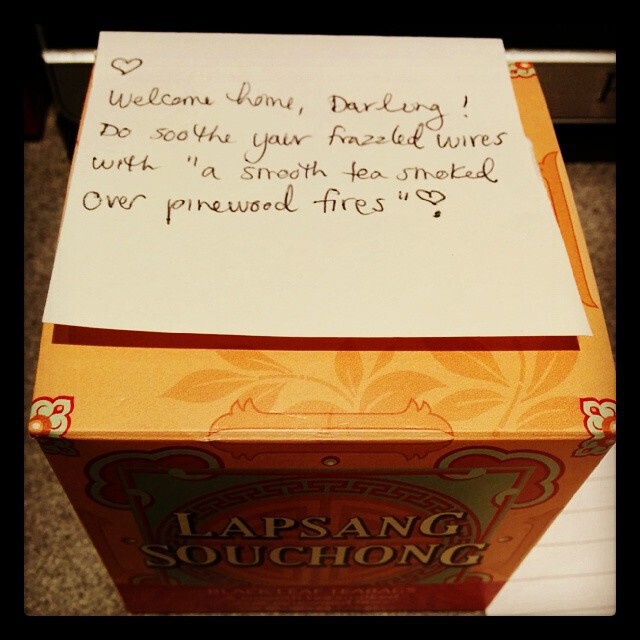 ♡
Welcome home, Darling!
Do soothe your frazzled wires
with "a smooth tea smoked
over pinewood fires" ♡.
LAPSANG
SOUCHONG
BLACK LEAF TEABAGS